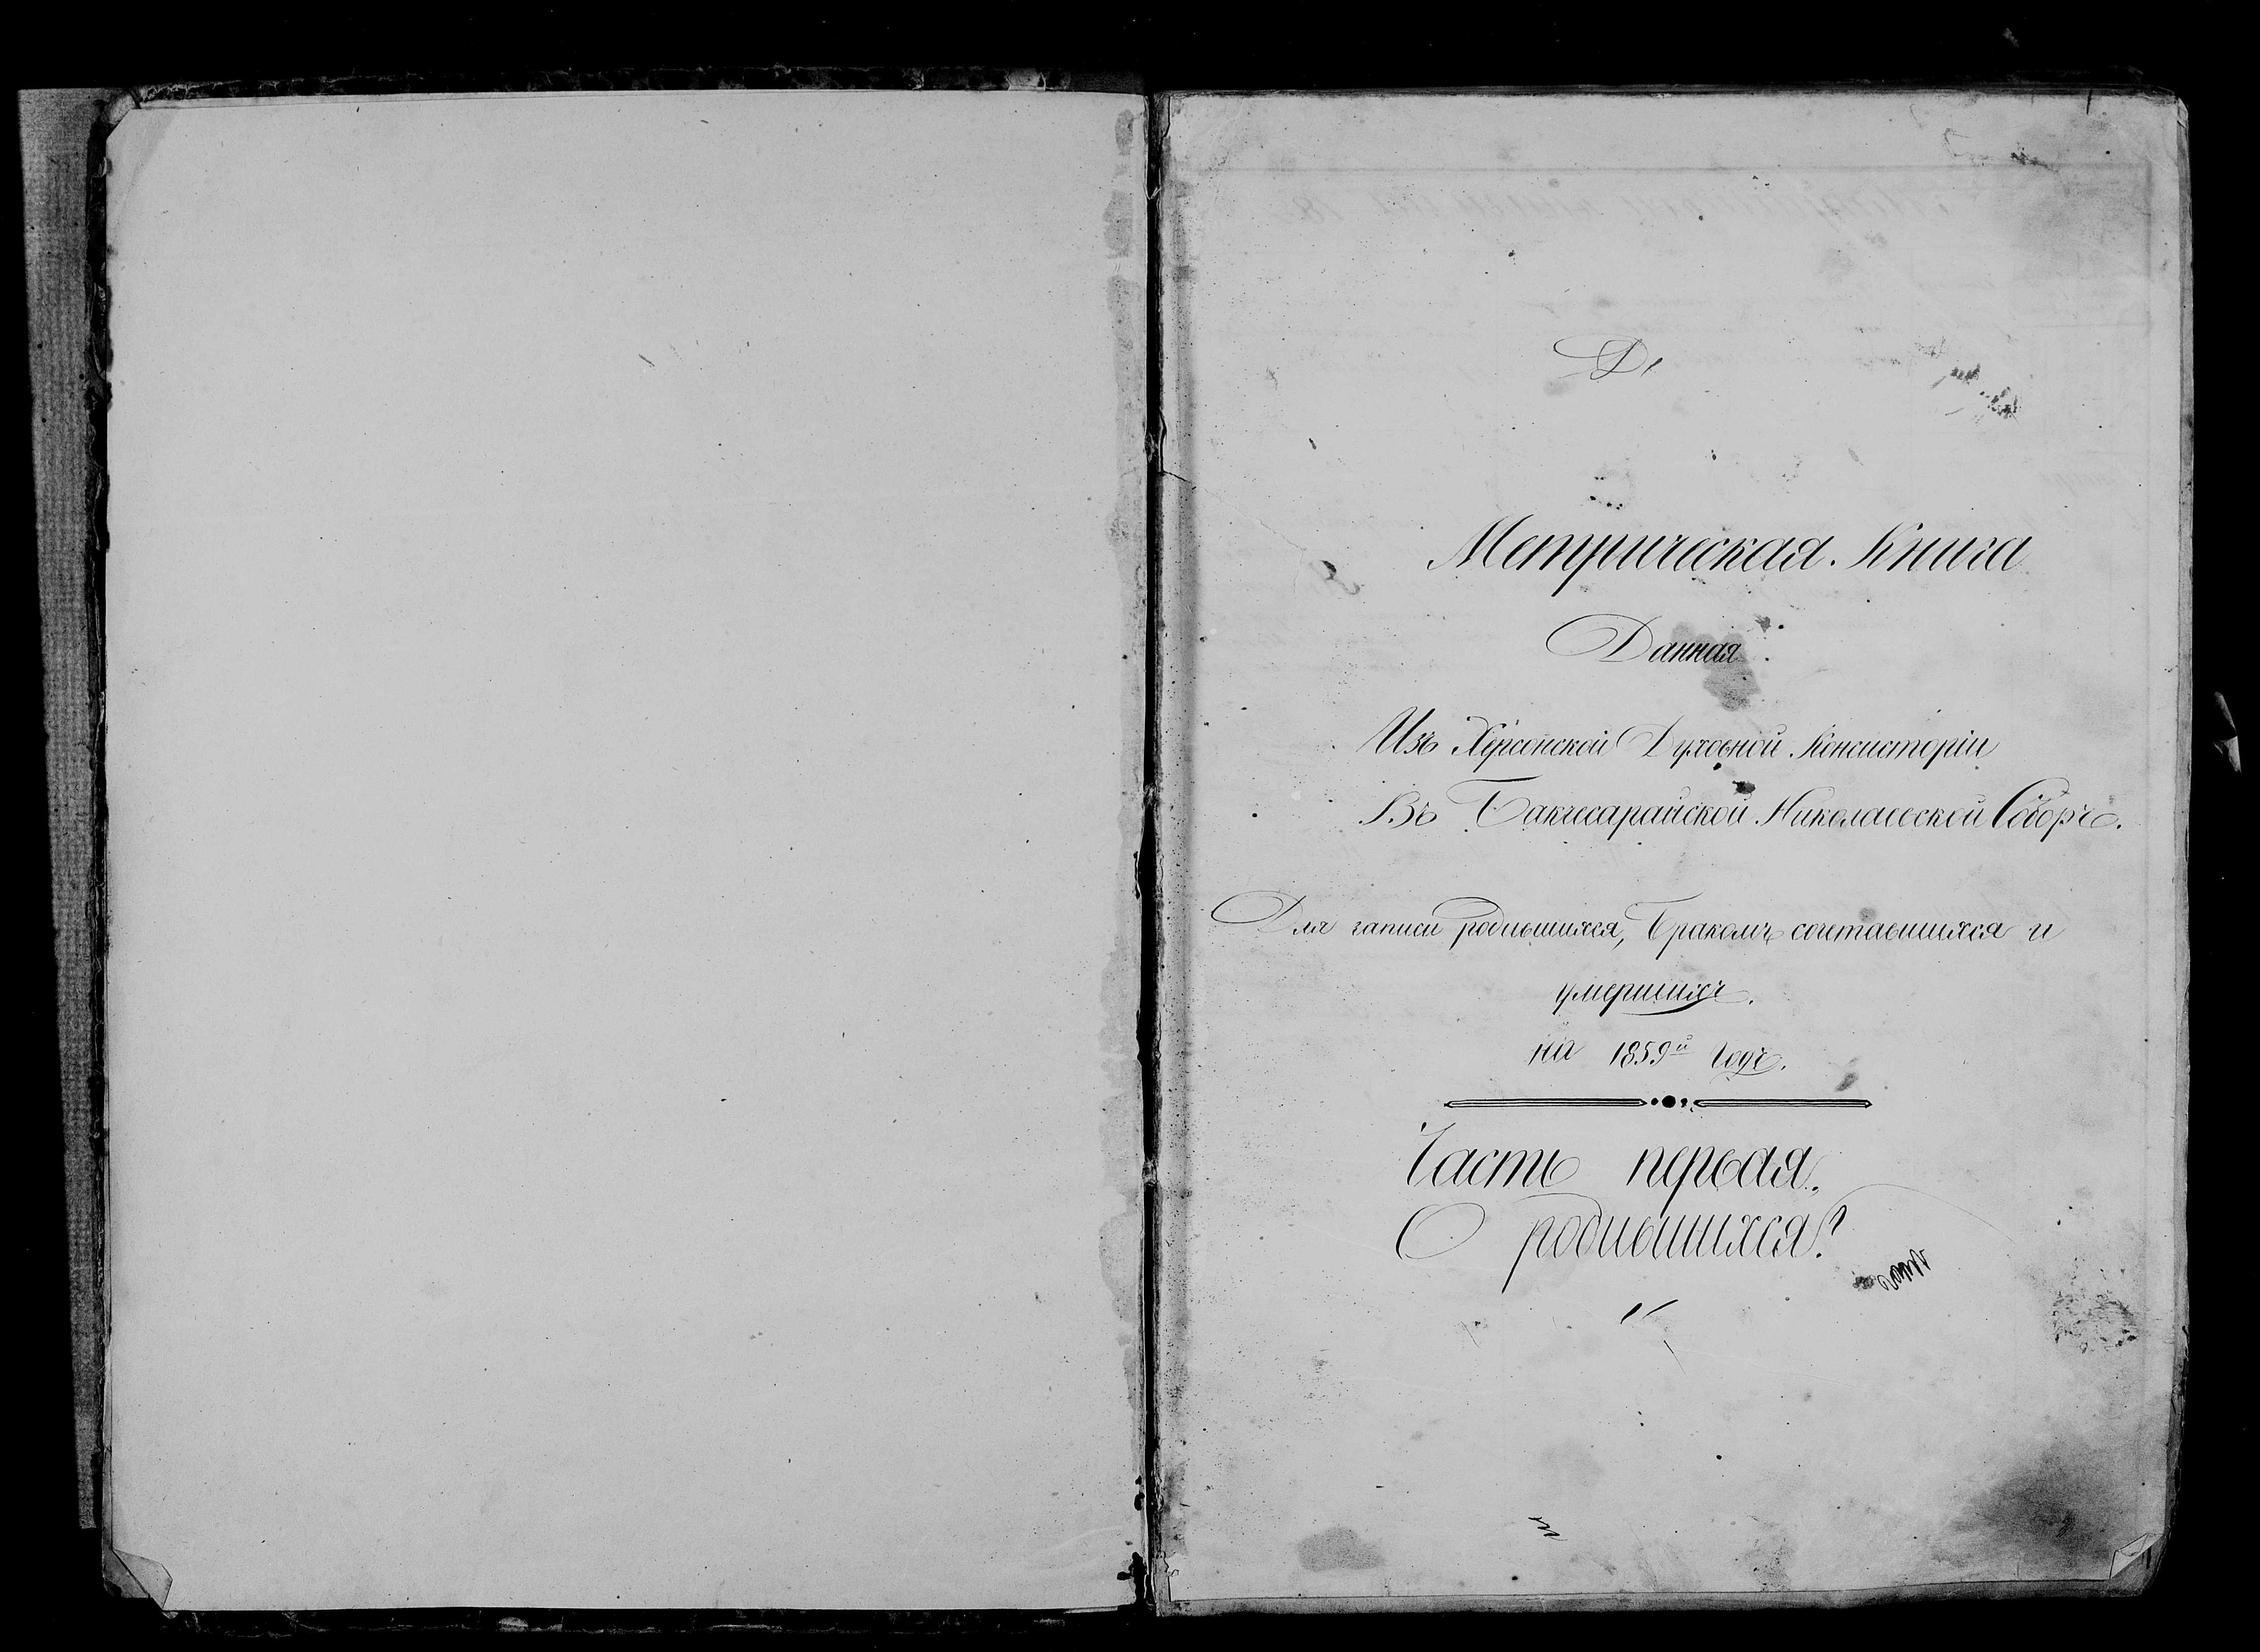 1
Метрическая Книга
Данная
Изъ Херсонской Духовной Консисторіи
Въ Бакчисарайской Николаевской Соборъ.
Для записи родившихся, Бракомъ сочетавшихся и
умершихъ.
на 1859й Годъ.
Часть первая.
О родившихся.